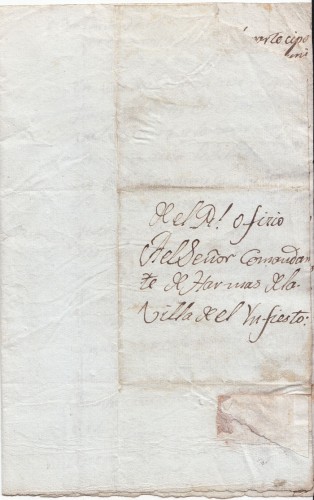 del Rl. ofizio
Al Señor Comandan
te de Harmas de la
Villa de el Ynfiesto: